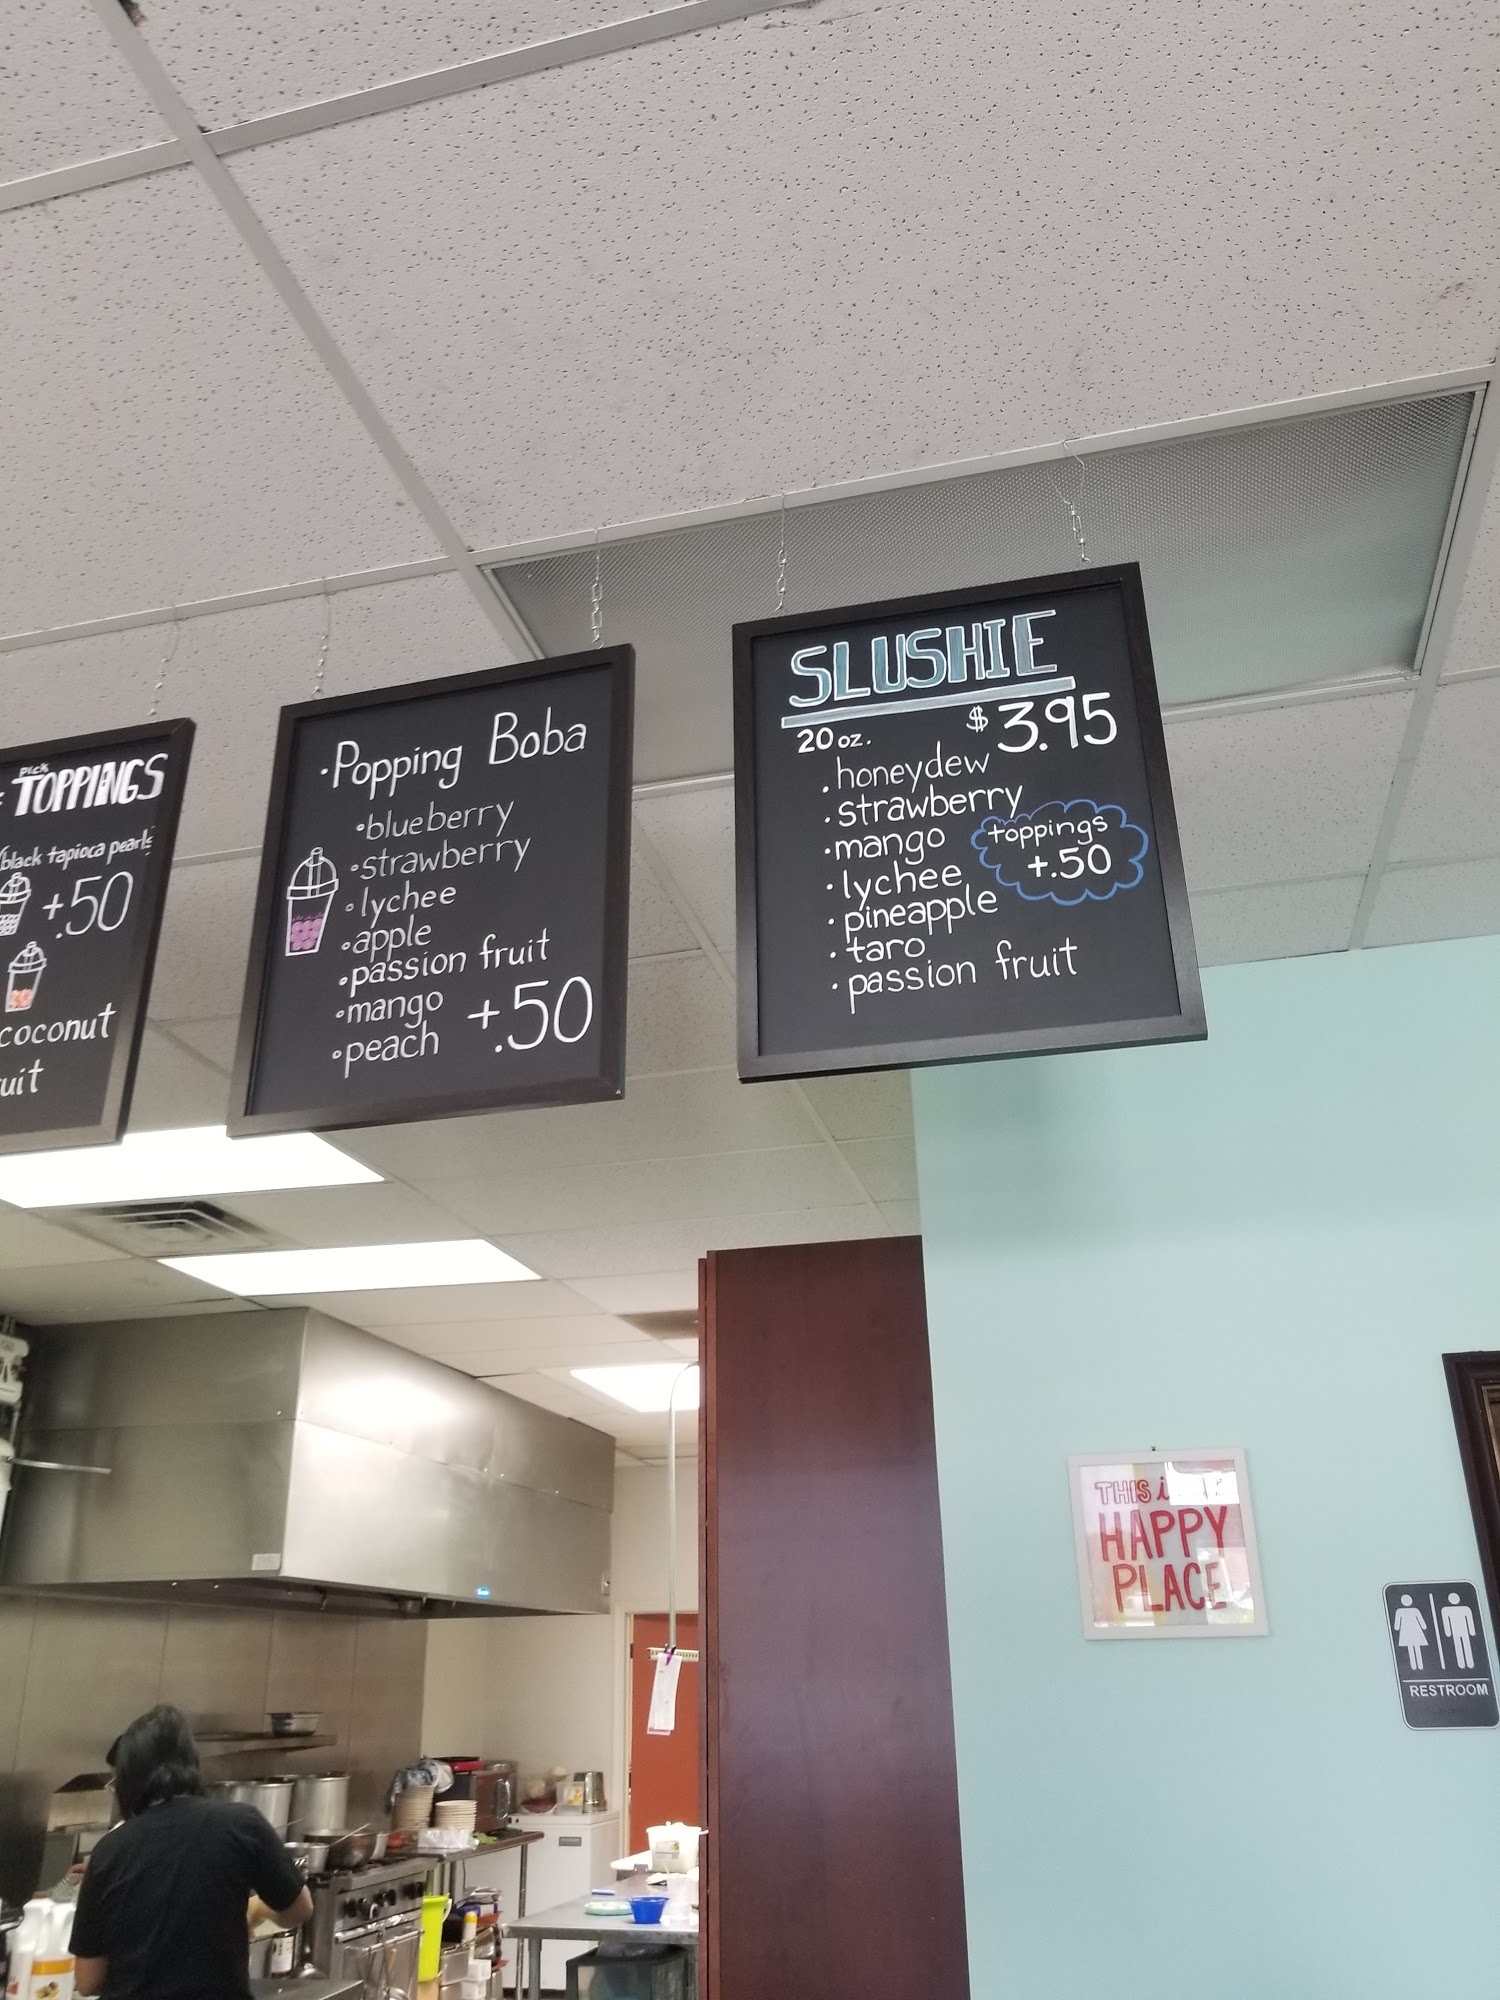 Pick
TOPPINGS
black tapioca pearls
+.50
coconut
• Popping Boba
• blueberry
• strawberry
• lychee
• apple
• passion fruit
• mango
• peach
+.50
SLUSHIE
20 oz. $3.95
• honeydew
• strawberry
• mango
• lychee
• pineapple
• taro
• passion fruit
toppings
+.50
THIS
HAPPY
PLACE
RESTROOM